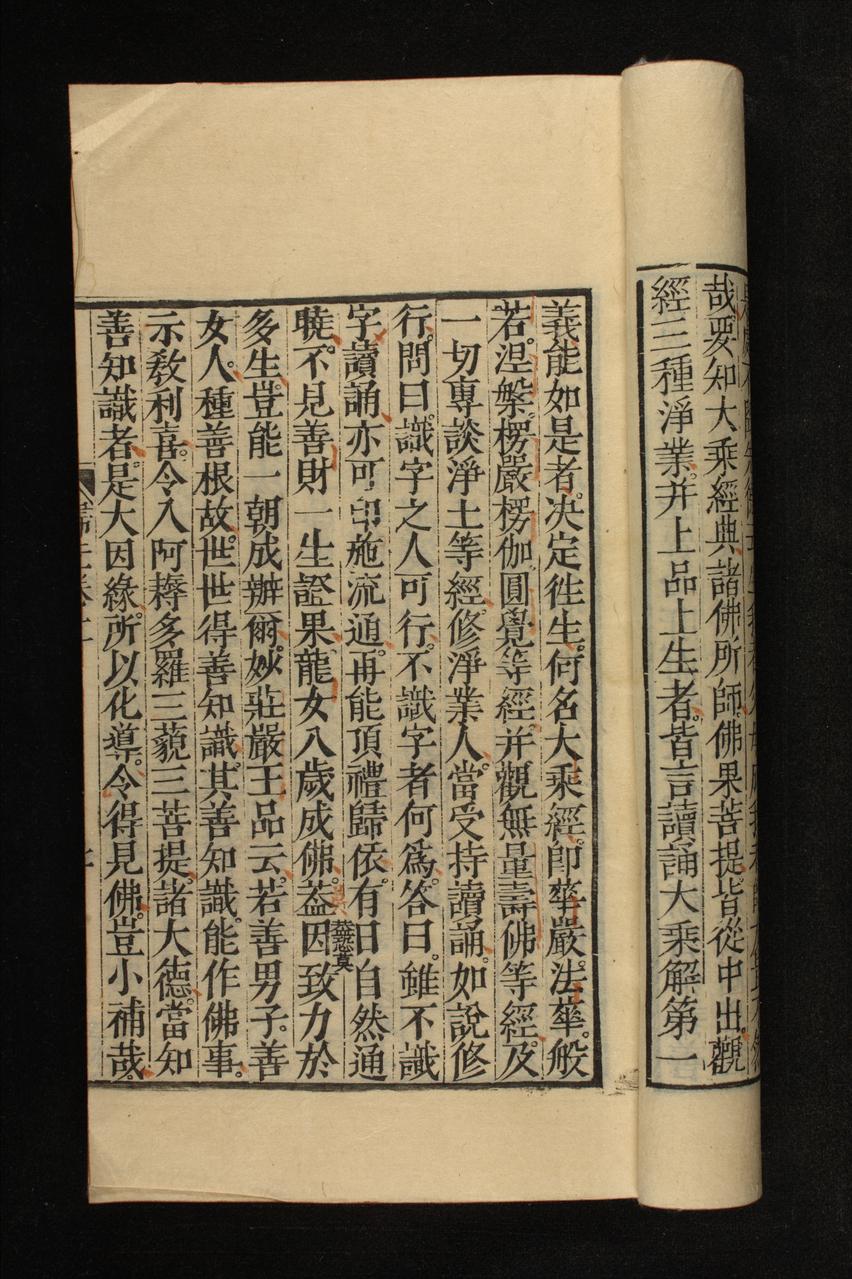 哉。要知大乘經典。諸佛所師。佛果菩提。皆從中出。觀
經三種淨業。并上品上生者。皆言讀誦大乘。解第一
義。能如是者。決定徃生。何名大乘經。卽華嚴。法華。般
若。涅槃。楞嚴。楞伽。圓覺等經。并觀無量壽佛等經。及
一切專談淨土等經。修淨業人。當受持讀誦。如說修
行。問曰。識字之人可行。不識字者何爲。答曰。雖不識
字。讀誦。亦可印施流通。再能頂禮歸依。有日自然通
曉。不見善財一生證果。龍女八歲成佛。葢因致力於
多生。豈能一朝成辦爾。妙莊嚴王品云。若善男子。善
女人。種善根故。世世得善知識。其善知識。能作佛事。
示敎利喜。令入阿耨多羅三藐三菩提。諸大德。當知
善知識者。是大因緣。所以化導。令得見佛。豈小補哉。